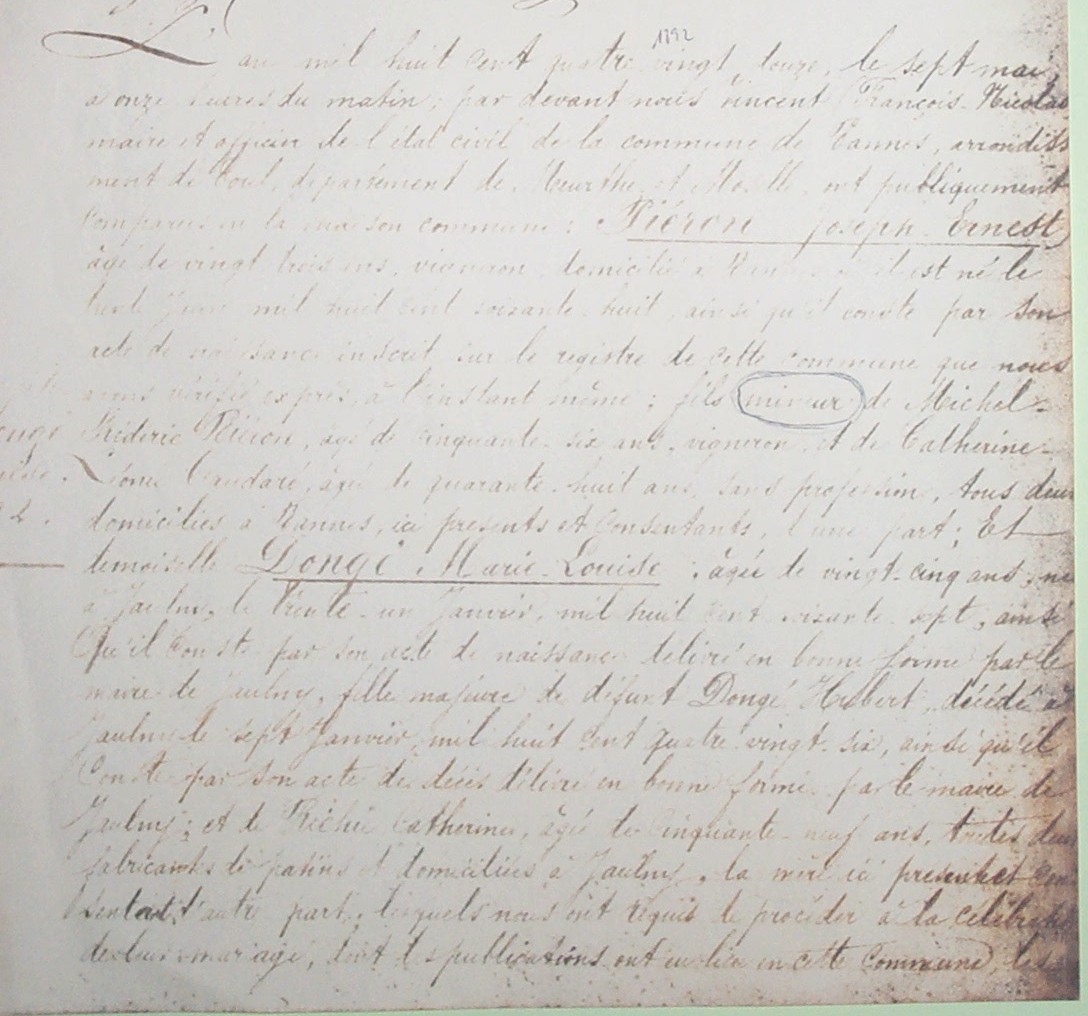 1792
L'an mil huit cent quatre vingt douze, le sept mai,
a onze heures du matin; par devant nous Vincent François Nicolas
maire et officier de l'état civil de la commune de Pannes, arrondiss
ment de Toul, département de Meurthe et Moselle, ont publiquement
comparu en la maison commune: Piéron Joseph Ernest
âgé de vingt trois ans, vigneron, domicilié à Pannes où il est né le
Juin mil huit cent soixante huit, ainsi qu'il conste par son
acte de naissance inscrit sur le registre de cette commune que nous
avons vérifié exprès à l'instant même; fils mineur de Michel
Fréderic Piéron, âgé de cinquante-six ans, vigneron et de Catherine
Léonie âgée de quarante-huit ans, sans profession, tous deux
domiciliés à Pannes, ici présents et consentants, d'une part; Et
demoiselle Dongé Marie-Louise, âgée de vingt-cinq ans, né
à Jaulny, le trente-un Janvier, mil huit cent soixante-sept, ainsi
Qu'il conste par son acte de naissance délivré en bonne forme par le
maire de Jaulny, fille majeure de défunt Dongé Hubert, décédé à
Jaulny le sept Janvier, mil huit cent quatre vingt-six, ainsi qu'il
conste par son acte de décès délivré en bonne forme par le maire de
Jaulny; et de Richié Catherine, âgée de cinquante-neuf ans, toutes deux
fabricants de et domiciliées à Jaulny, la mère ici présente et con
sentant d'autre part, lesquels nous ont requis de procéder à la célébration
de leur mariage, dont les publications ont eu lieu en cette commune, les